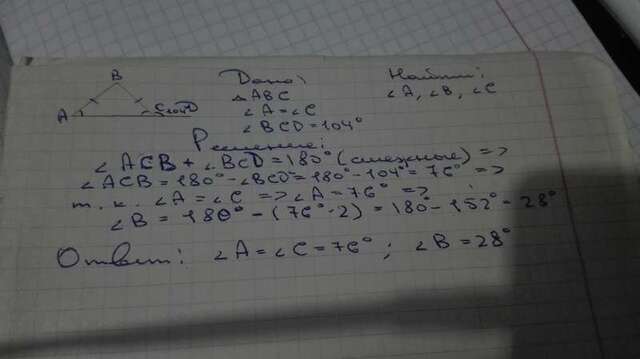 B
A C 104° D
Дано:
△ABC
∠A=∠C
∠BCD=104°
Найти:
∠A, ∠B, ∠C
Решение:
∠ACB+∠BCD=180° (смежные) =>
∠ACB=180°-∠BCD=180°-104°=76° =>
т.к. ∠A=∠C => ∠A=76° =>
∠B=180°-(76°·2)=180°-152°=28°
Ответ: ∠A=∠C=76°; ∠B=28°